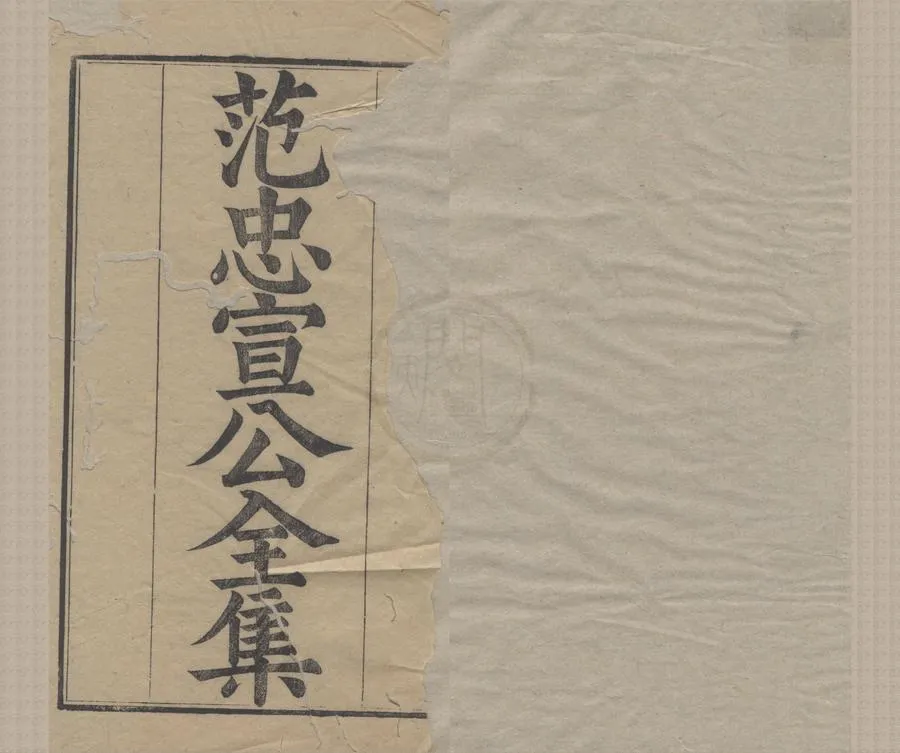 范忠宣公全集